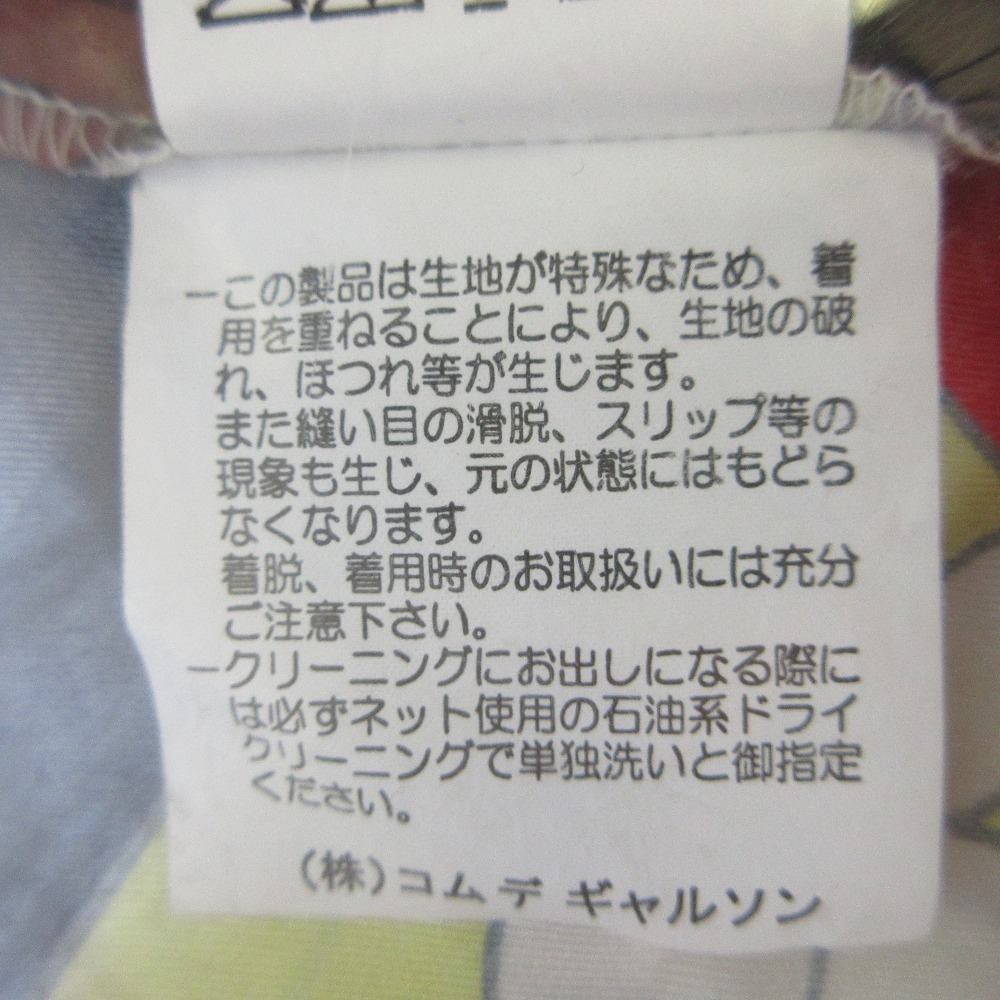 ーこの製品は生地が特殊なため、着
用を重ねることにより、生地の破
れ、ほつれ等が生じます。
また縫い目の滑脱、スリップ等の
現象も生じ、元の状態にはもどら
なくなります。
着脱、着用時のお取扱いには充分
ご注意下さい。
ークリーニングにお出しになる際に
は必ずネット使用の石油系ドライ
クリーニングで単独洗いと御指定
ください。
(株)コム デ ギャルソン